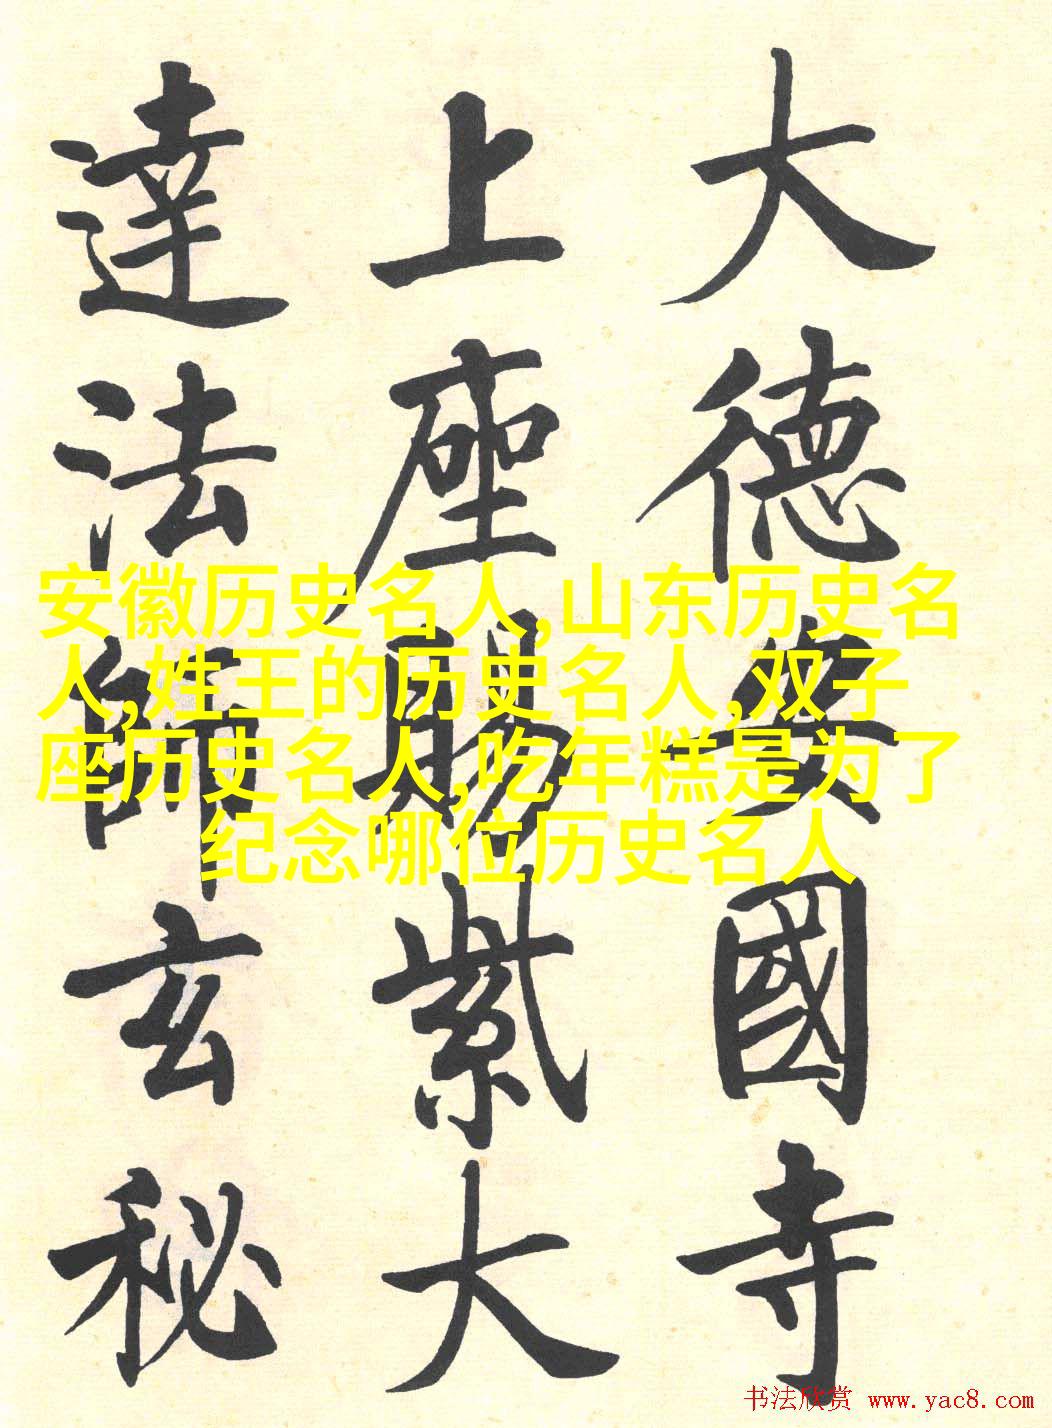 大德安國寺
上座賜紫大
達法師玄秘
安徽历史名人,山东历史名
人,姓王的历史名人,双子
座历史名人,吃年糕是为了
纪念哪位历史名人
书法欣赏 www.yac8.com